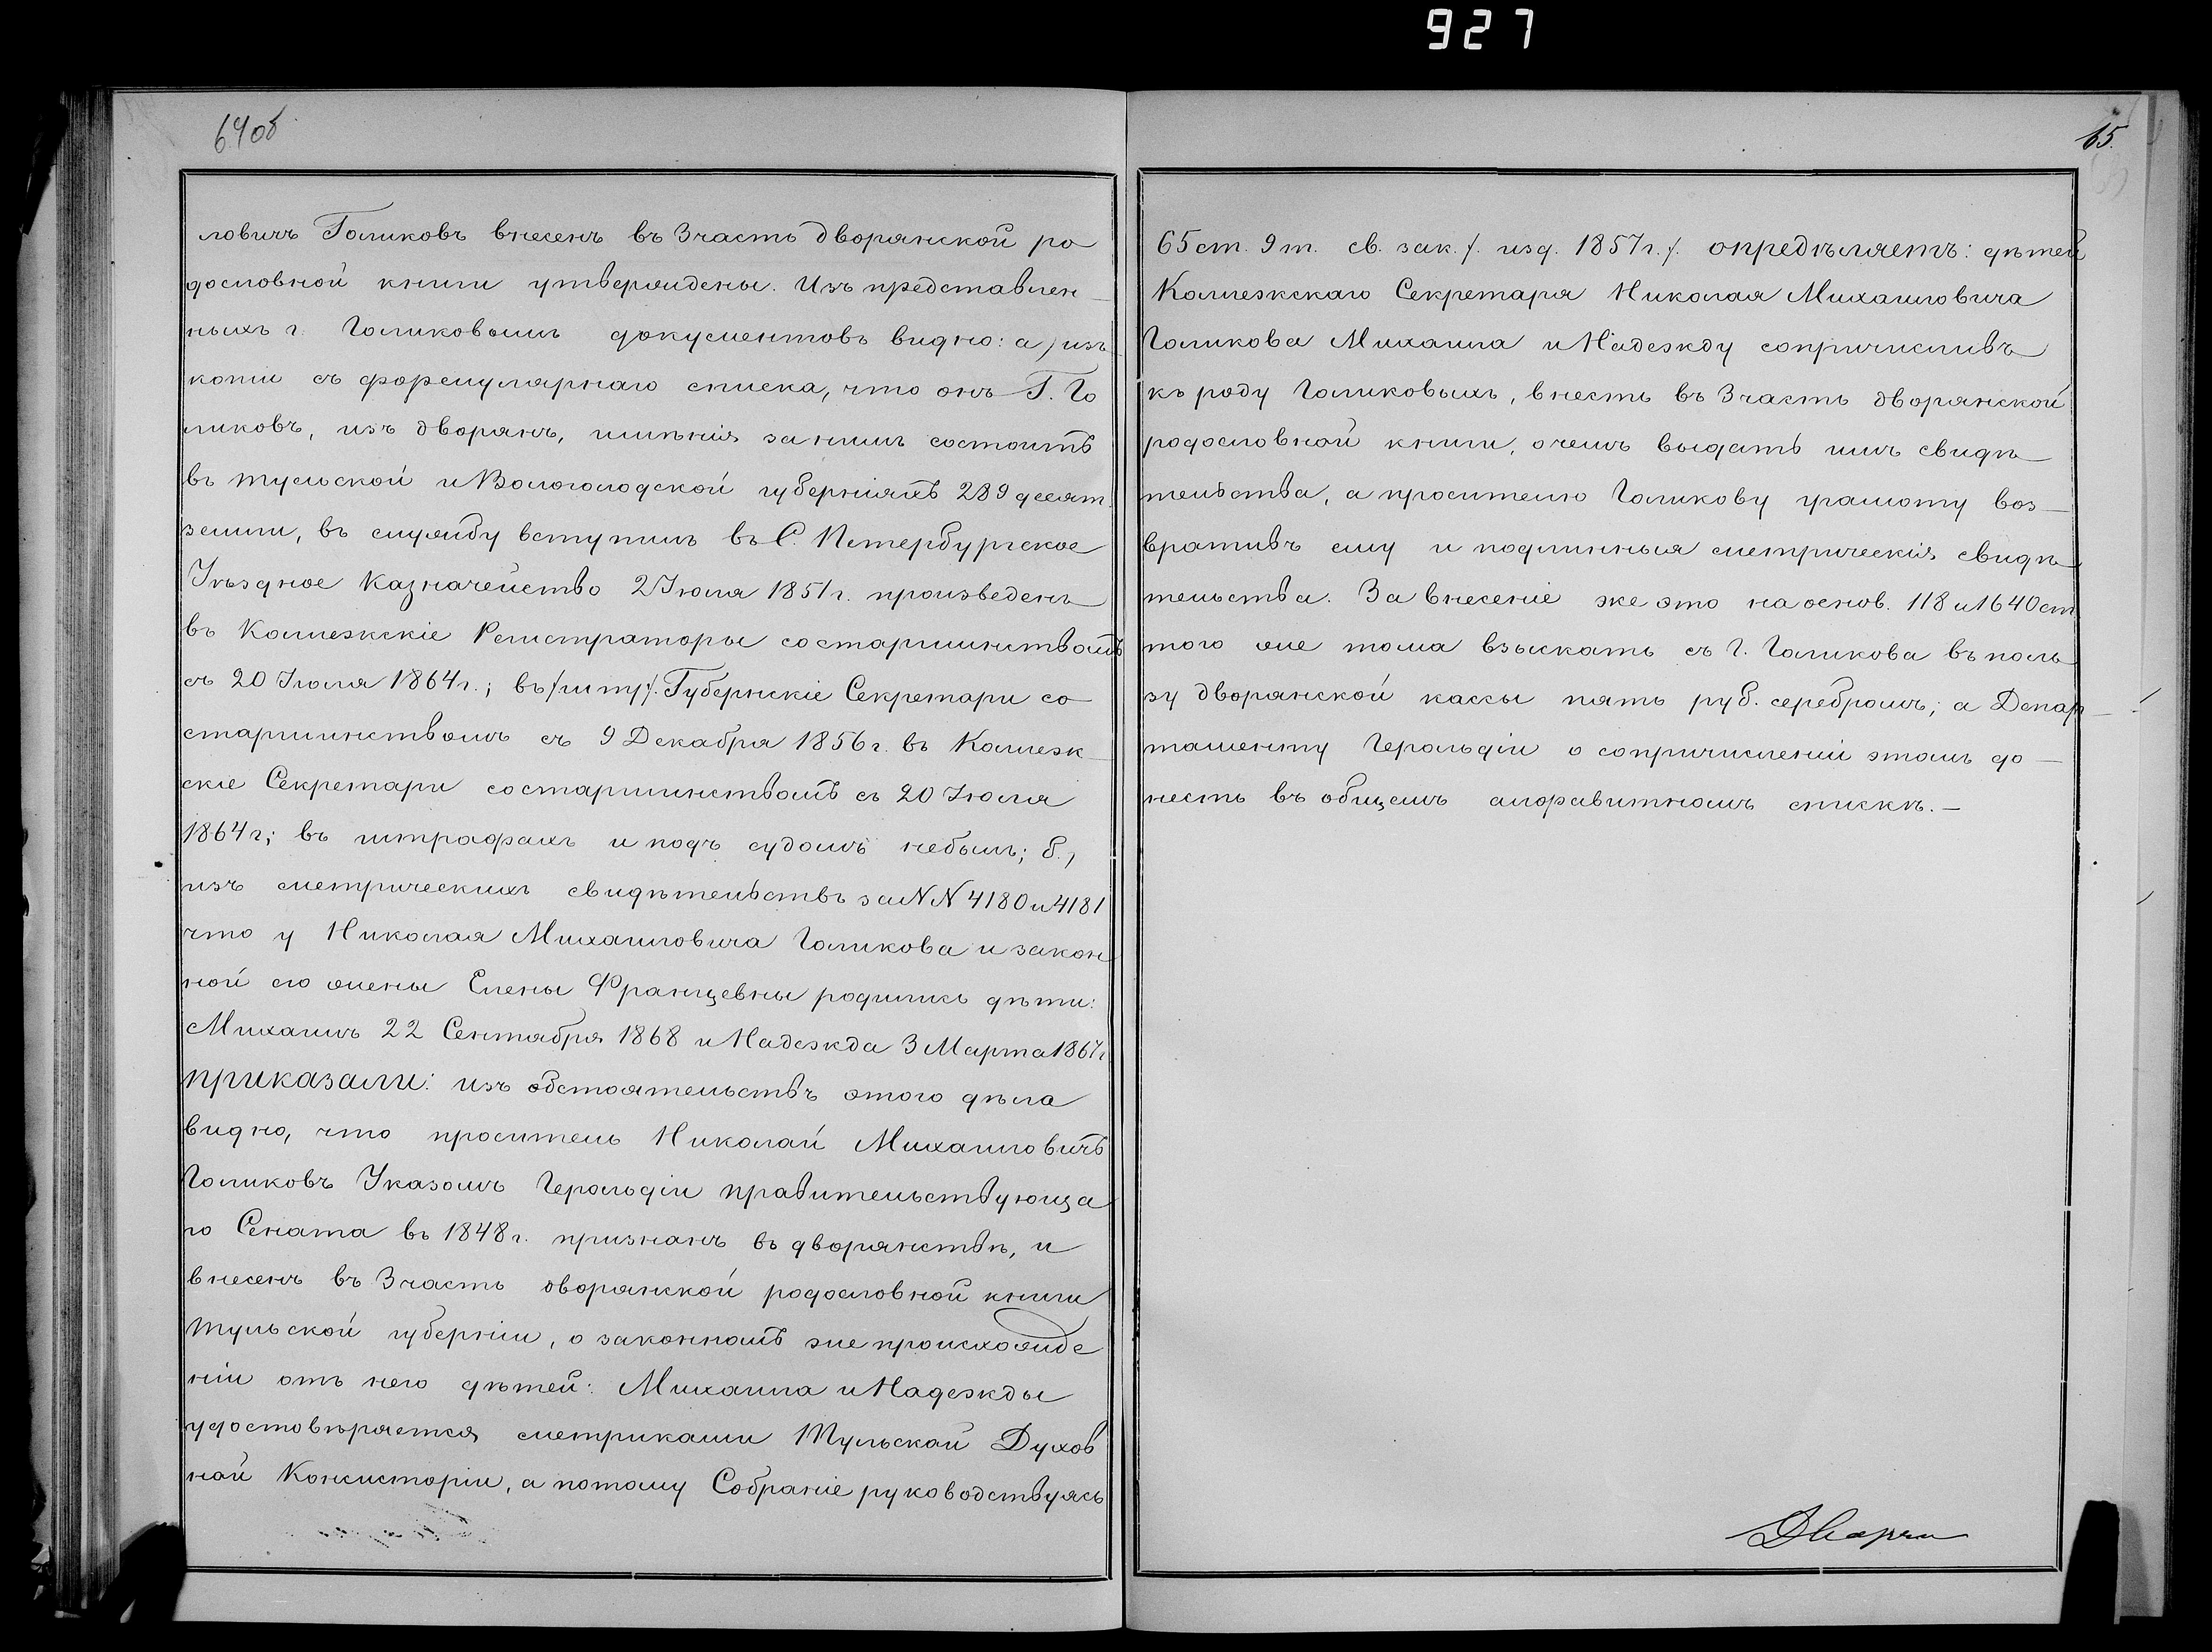 927
64об
65.
ловичъ Голиковъ внесенъ въ 3 часть дворянской ро
дословной книги утверждены. Изъ представлен—
ныхъ г. Голиковымъ документовъ видно: а) изъ
копіи съ формулярнаго списка, что онъ Г. Го
ликовъ, изъ дворянъ, имѣнія за нимъ состоитъ
въ Тульской и Вологолодской губерніяхъ 289 десят.
земли, въ службу вступилъ въ С. Петербургское
Уѣздное Казначейство 2 Іюля 1851 г. произведенъ
въ Коллежскіе Регистраторы со старшинствомъ
съ 20 Іюля 1864 г.; въ Губернскіе Секретари со
старшинствомъ съ 9 Декабря 1856 г. въ Коллеж—
скіе Секретари со старшинствомъ съ 20 Іюля
1864 г; въ штрафахъ и подъ судомъ небылъ; б.,
изъ метрическихъ свидѣтельствъ за N N 4180 и 4181
что у Николая Михаиловича Голикова и закон
ной его жены Елены Францевны родились дѣти:
Михаилъ 22 Сентября 1868 и Надежда 3 Марта 1867 г
приказали: изъ обстоятельствъ этого дѣла
видно, что проситель Николай Михаиловичъ
Голиковъ Указомъ Герольдіи правительствующа
го Сената въ 1848 г. признанъ въ дворянствѣ, и
внесенъ въ 3 часть дворянской родословной книги
Тульской губерніи, о законномъ же происхожде
ніи отъ него дѣтей: Михаила и Надежды
удостовѣряется метриками Тульской Духов
ной Консисторіи, а потому Собраніе руководствуясь
65 ст. 9 т. св. зак. /. изд. 1857 г. /. опредѣляетъ: дѣтей
Коллежскаго Секретаря Николая Михаиловича
Голикова Михаила и Надежду сопричисливъ
къ роду Голиковыхъ, внесть въ 3 часть дворянской
родословной книги, о чемъ выдать имъ свидѣ—
тельства, а просителю Голикову грамоту воз—
вративъ ему и подлинныя метрическія свидѣ
тельства. За внесеніе же это на основ. 118 и 1640 ст
того же тома взыскать съ Г. Голикова въ поль
зу дворянской кассы пять руб. серебромъ; а Депар—
таменту Герольдіи о сопричисленіи этомъ до—
несть въ общемъ алфавитномъ спискѣ.—